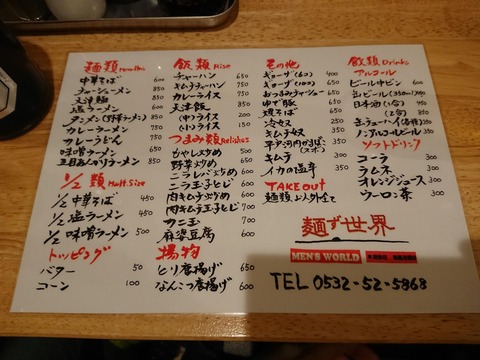 麺類 Noodles
中華そば 600
チャーシューメン 850
天津麺
塩ラーメン
タンメン(野菜ラーメン) 850
カレーラーメン
カレーうどん
味噌ラーメン
五目あんかけラーメン 850
1/2類 Half.Size
1/2 中華そば 450
1/2 塩ラーメン 450
1/2 味噌ラーメン 500
トッピング
バター 50
コーン 100
飯類 Rise
チャーハン 650
キムチチャーハン 750
カレーライス 750
天津飯 650
(中)ライス 200
(小)ライス 150
つまみ類 Relishes
もやし炒め 500
野菜炒め 650
ニラレバ炒め
ニラ玉子とじ
肉キムチ炒め
肉キムチ玉子とじ 700
カニ玉
麻婆豆腐 600
揚物
とり唐揚げ 650
なんこつ唐揚げ 600
その他
ギョーザ(6コ) 400
ギョーザ(10コ) 650
おつまみチャーシュー
ゆで豚
焼そば
冷ヤス
キムチ
イカの塩辛 350
TAKE OUT
麺類以外全て
飲類 Drinks
アルコール
ビール中ビン 600
缶ビール(350ml)
日本酒(1合)
(2合)
ノンアルコールビール
ソフトドリンク
コーラ 300
ラムネ 300
オレンジジュース 300
ウーロン茶 300
麺ず世界
MEN'S WORLD
TEL 0532-52-5868